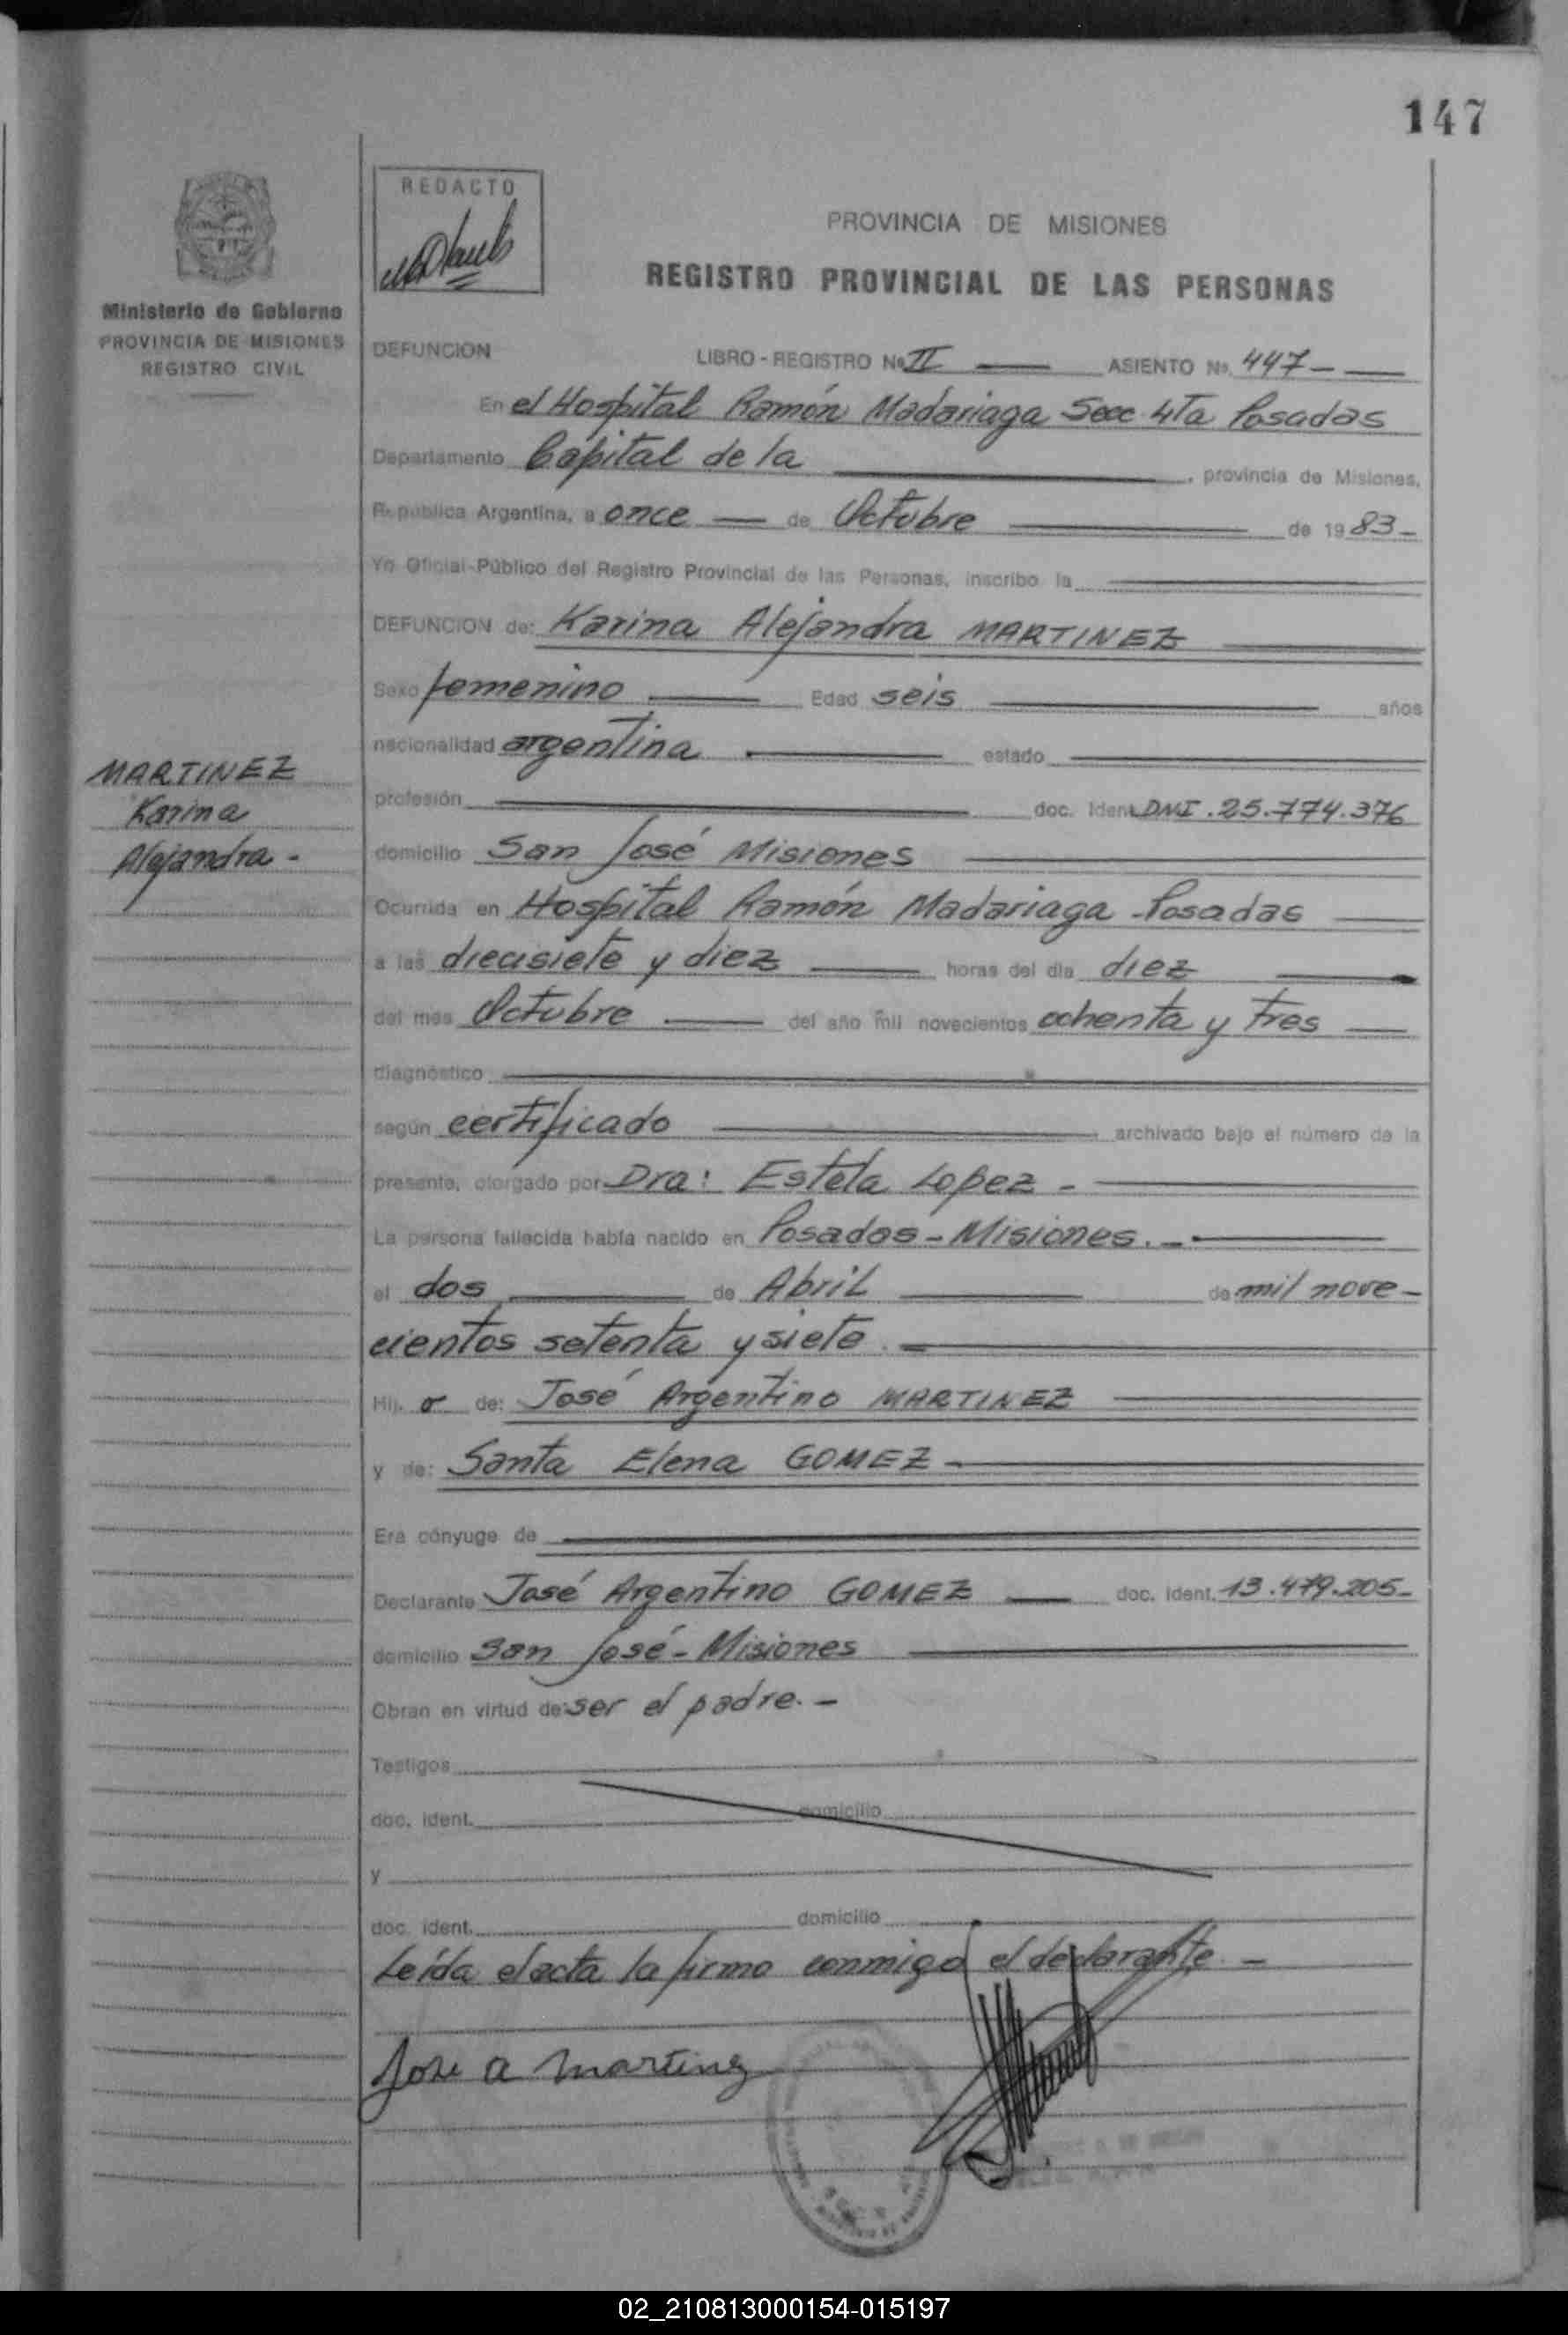 147
REDACTO
PROVINCIA DE MISIONES
REGISTRO PROVINCIAL DE LAS PERSONAS
Ministerio de Gobierno
PROVINCIA DE MISIONES
REGISTRO CIVIL
DEFUNCION LIBRO - REGISTRO Nº II ASIENTO Nº. 447 -
En el Hospital Ramón Madariaga Secc 4Ta Posadas
Departamento Capital de la , provincia de Misiones,
República Argentina, a once de Octubre de 1983 -
Yo Oficial Público del Registro Provincial de las Personas, inscribo la
DEFUNCION de: Karina Alejandra MARTINEZ
Sexo femenino Edad seis años
nacionalidad argentina estado
profesión doc. ident. DNI. 25.774.376
domicilio San José Misiones
Ocurrida en Hospital Ramón Madariaga Posadas
a las diecisiete y diez horas del día diez
del mes Octubre del año mil novecientos ochenta y tres
diagnóstico
según certificado archivado bajo el número de la
presente, otorgado por Dra: Estela Lopez -
La persona fallecida había nacido en Posadas - Misiones. -
el dos de Abril de mil nove -
cientos setenta y siete
Hij a de: José Argentino MARTINEZ
y de: Santa Elena GOMEZ -
Era cónyuge de
Declarante José Argentino GOMEZ doc. ident. 13.479.205 -
domicilio San José - Misiones
Obran en virtud de ser el padre. -
Testigos
doc. ident. domicilio
y
doc. ident. domicilio
Leída el acta la firma conmigo el declarante -
Jose a martinez
MARTINEZ
Karina
Alejandra -
02_210813000154-015197